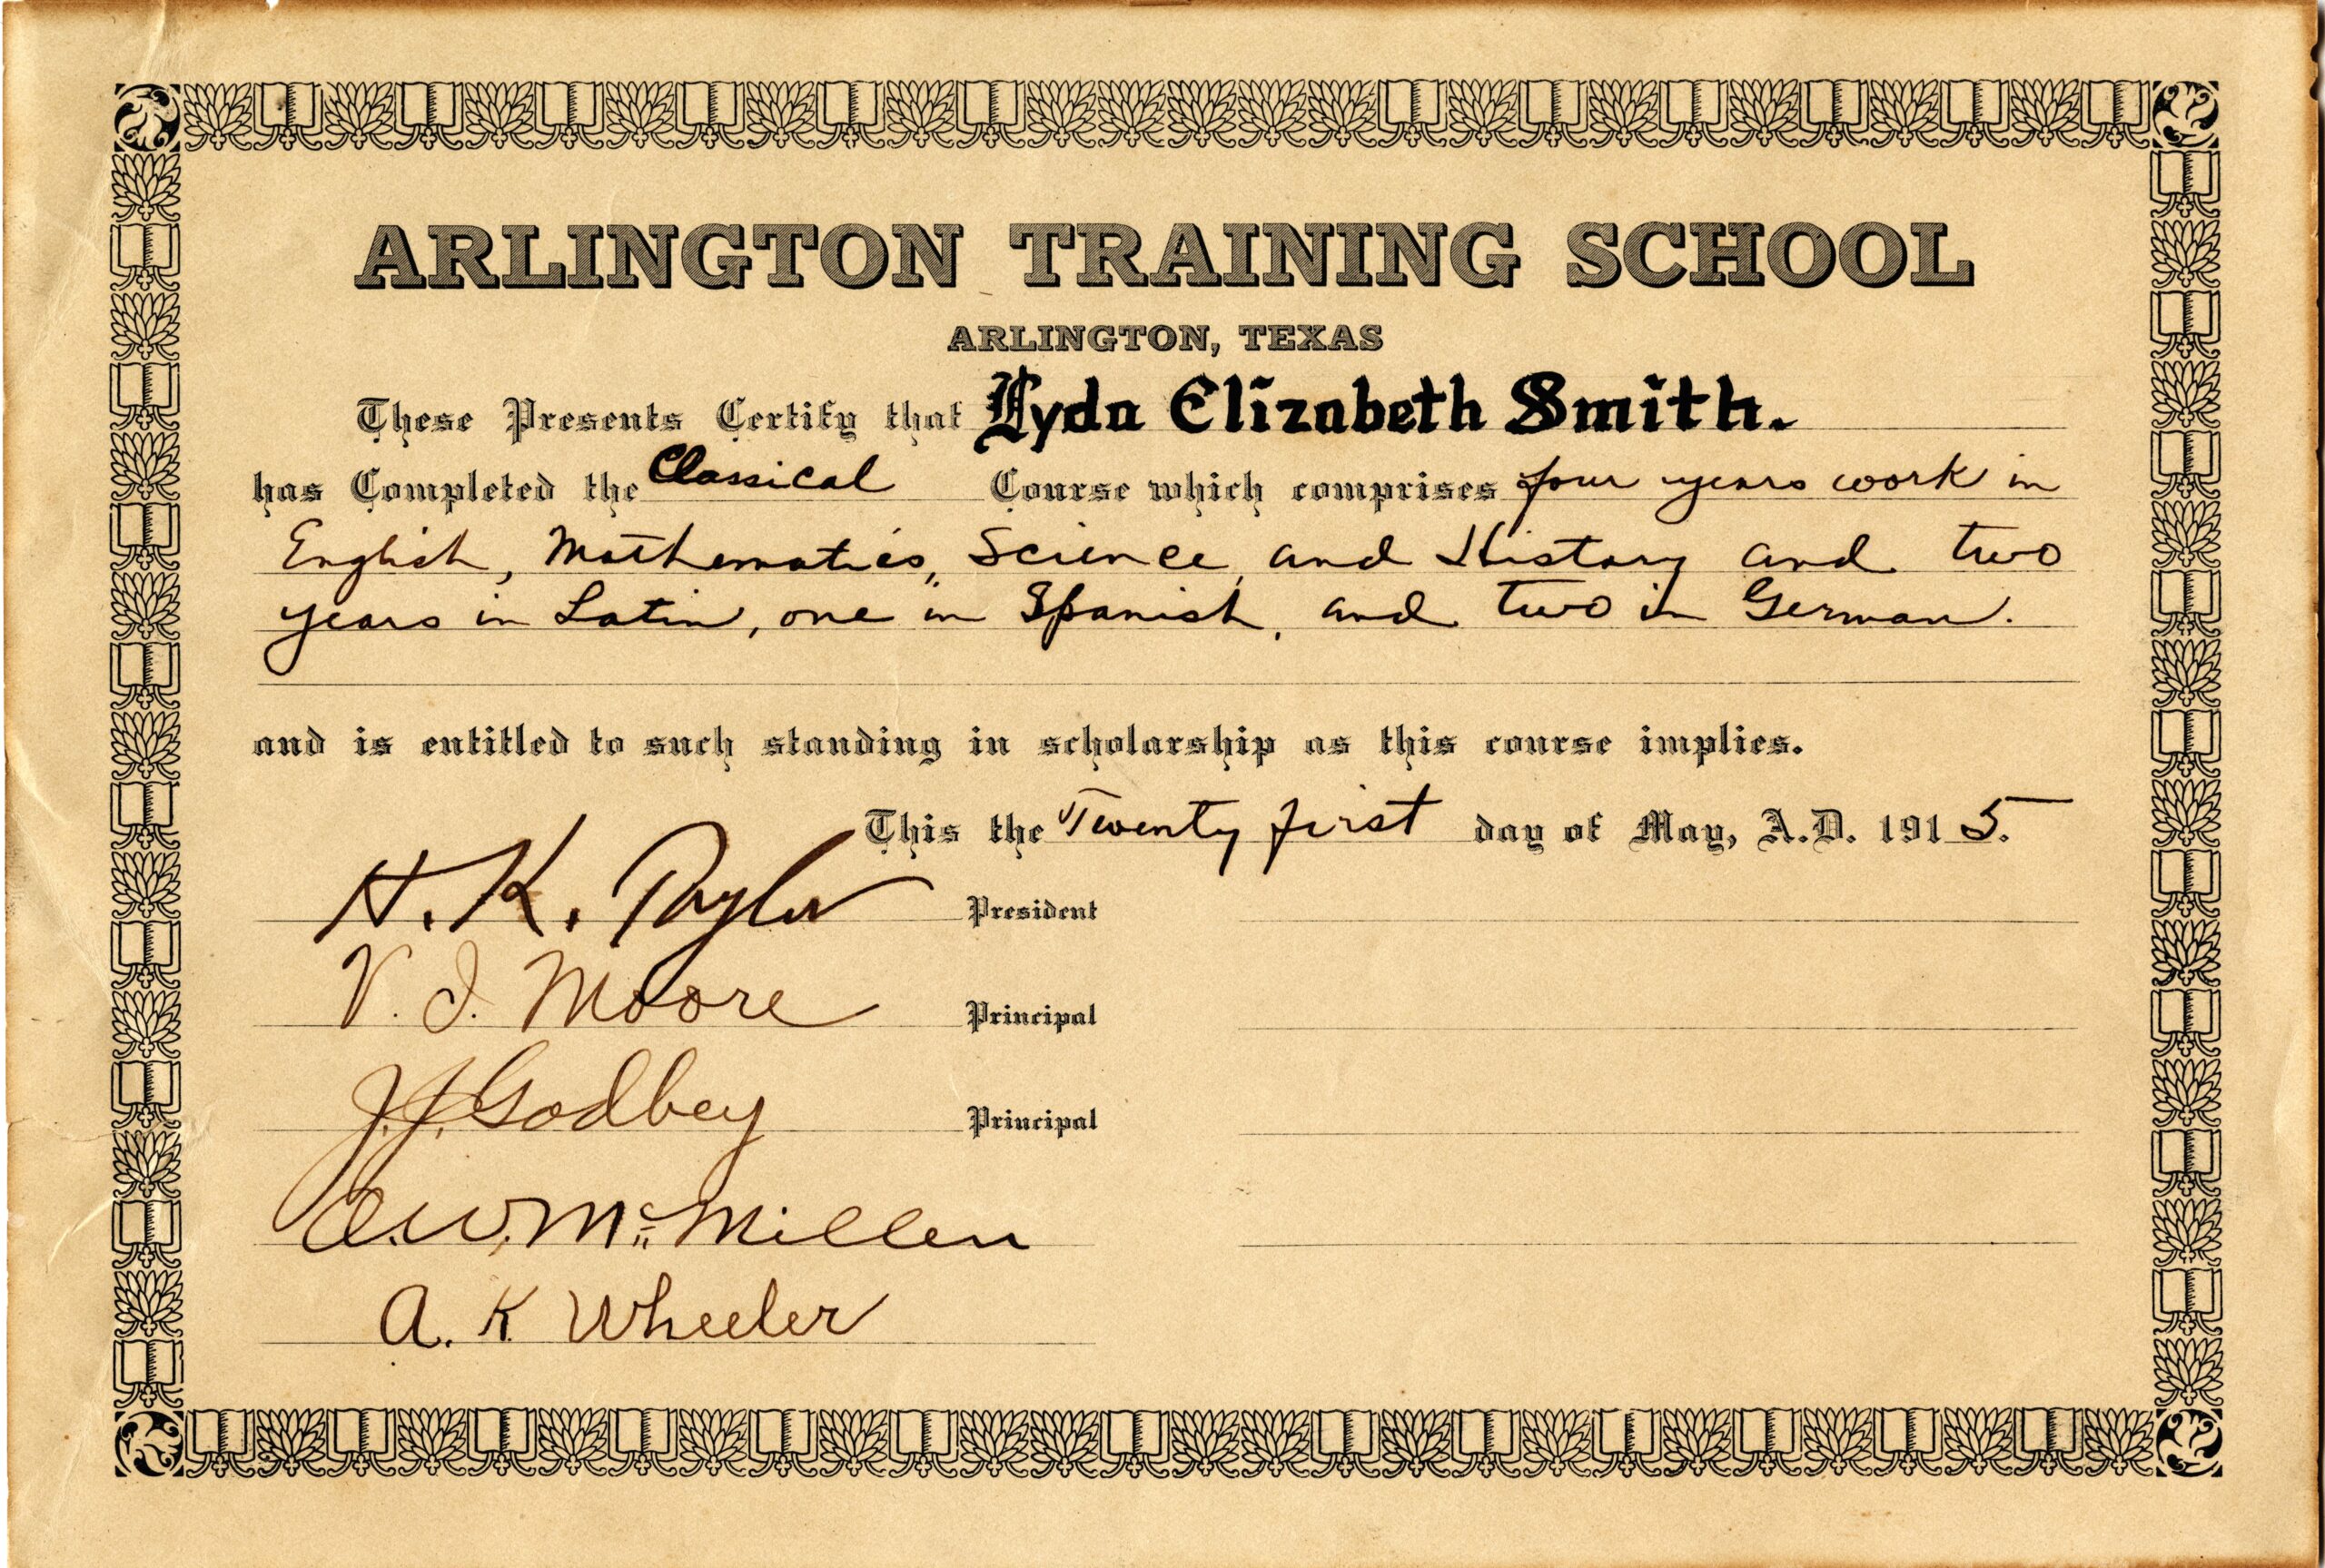 ARLINGTON TRAINING SCHOOL
ARLINGTON, TEXAS
These Presents Certify that Lyda Elizabeth Smith.
has Completed the Classical Course which comprises four years work in
English, Mathematics, Science, and History and two
years in Latin, one in Spanish, and two in German.
and is entitled to such standing in scholarship as this course implies.
This the Twenty first day of May, A.D. 1915.
H. K. Taylor President
V. I. Moore Principal
J. J. Godbey Principal
A. W. McMillen
A. K Wheeler